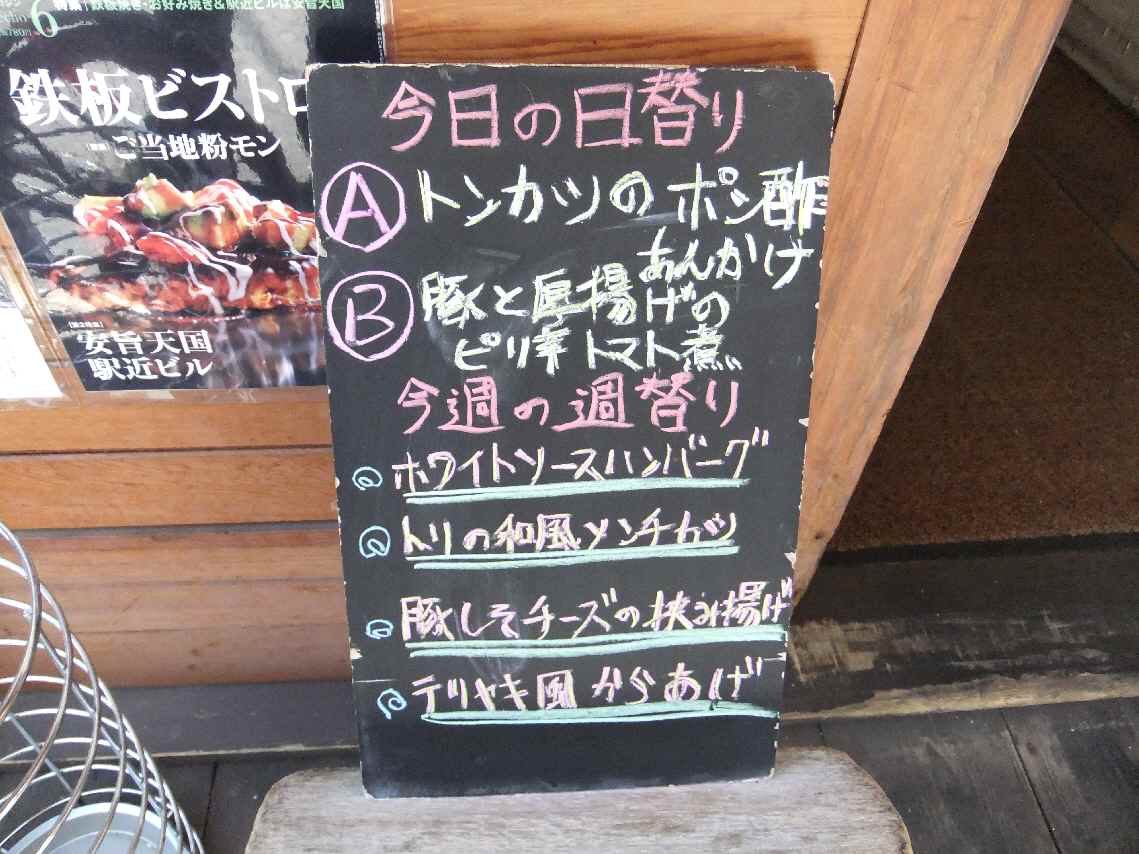 6 特集 鉄板焼き・お好み焼き&駅近ビルは安旨天国
鉄板ビストロ
ご当地粉モン
安旨天国
駅近ビル
今日の日替り
A トンカツのポン酢
あんかけ
B 豚と厚揚げの
ピリ辛トマト煮
今週の週替り
ホワイトソースハンバーグ
トリの和風メンチカツ
豚しそチーズの挟み揚げ
テリヤキ風からあげ